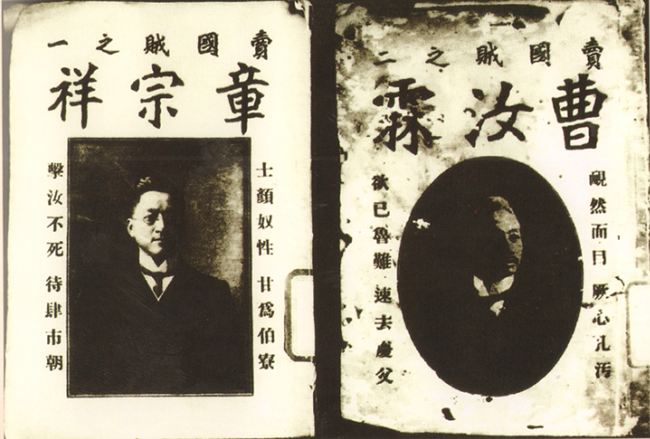 賣國賊之一
章宗祥
士顏奴性 甘爲伯寮
擊汝不死 待肆市朝
賣國賊之二
曹汝霖
靦然面目 厥心孔汚
欲已魯難 速去慶父